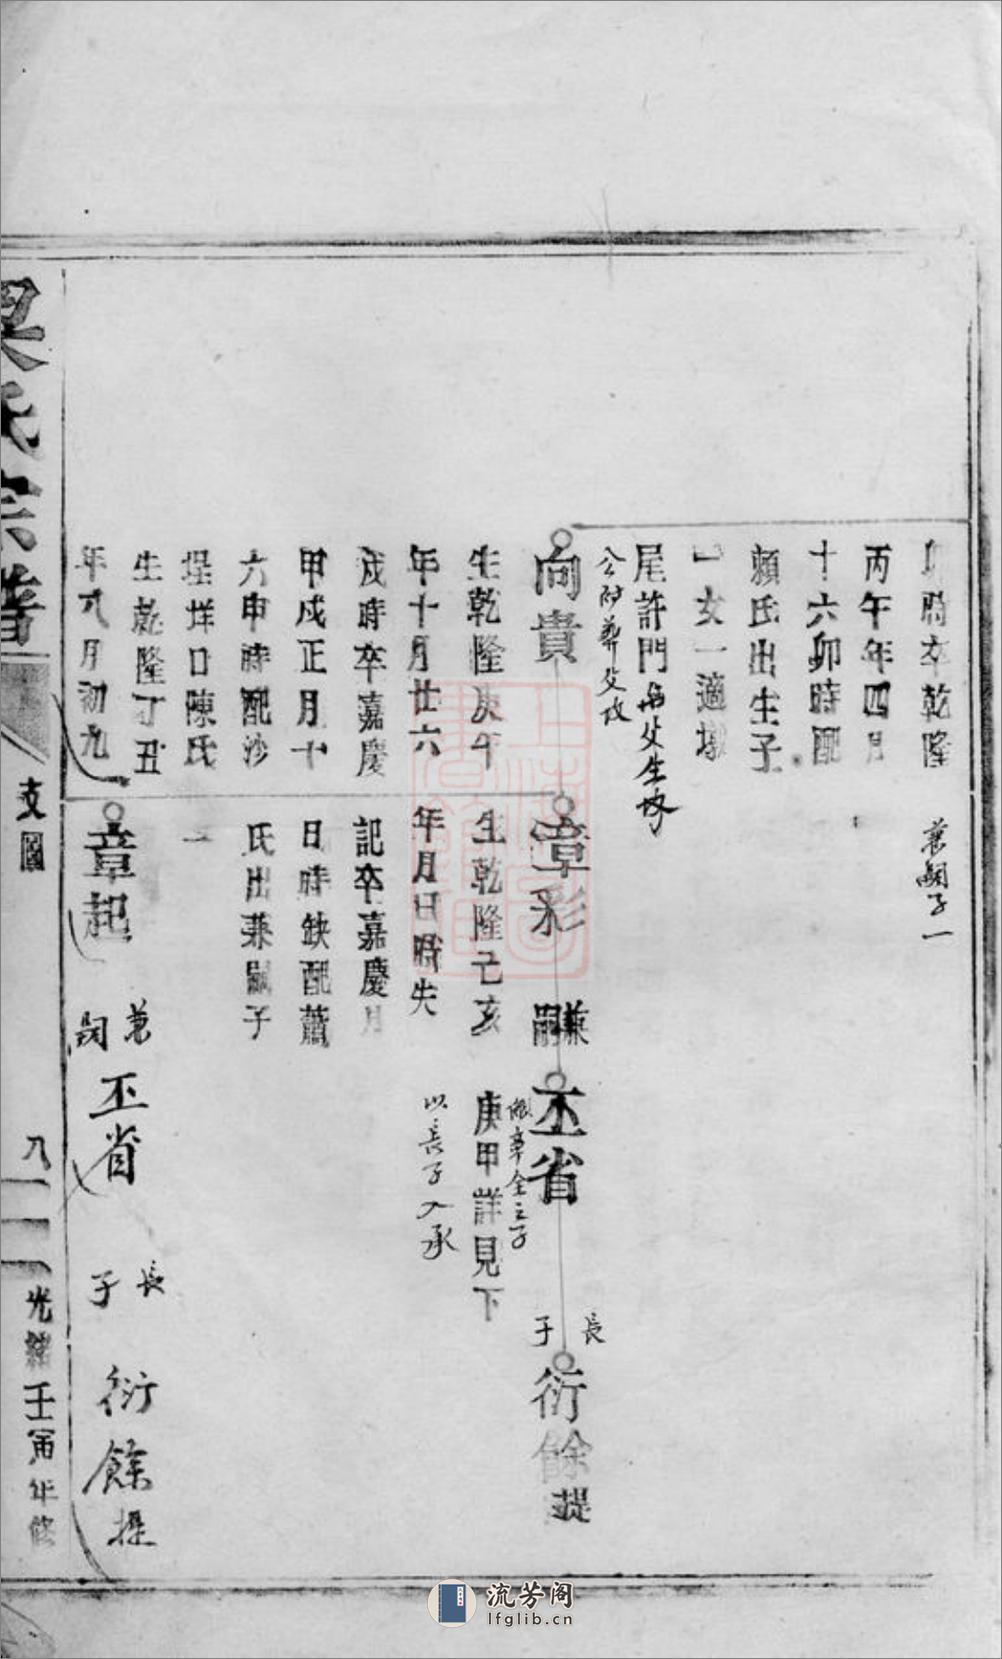 卯時卒乾隆
丙午年四月
十六卯時配
賴氏出生子
一女一適墩
尾許門
公附葬父
兼嗣子一
向貴
生乾隆庚午
年十月廿六
戌時卒嘉慶
甲戌正月十
六申時配沙
埕垟口陳氏
生乾隆丁丑
年八月初九
章彩
生乾隆己亥
年月日時失
記卒嘉慶月
日時缺配蕭
氏出兼嗣子
一
兼嗣
丕省
庚甲詳見下
以長子入承
長子
衍餘
提
章起
兼嗣
丕省
長子
衍餘
提
梁氏宗譜
支圖
八
光緒壬寅年修
流芳阁
lfglib.cn